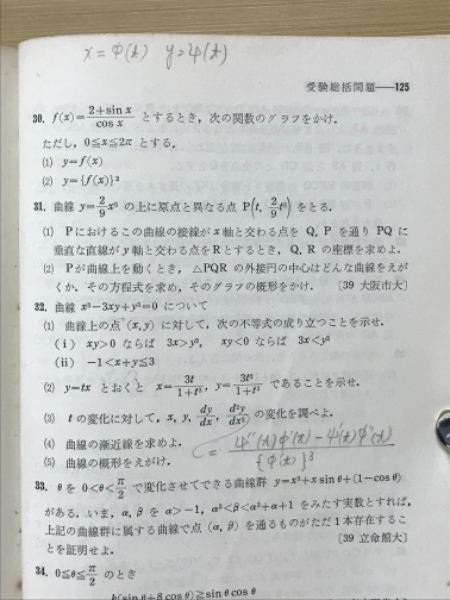 x = φ(t)  y = ψ(t)
受験総括問題——125
30. f(x)=(2+sin x)/(cos x) とするとき，次の関数のグラフをかけ．
ただし，0≦x≦2π とする．
(1) y=f(x)
(2) y={f(x)}²
31. 曲線 y=2/9 x³ の上に原点と異なる点 P(t, 2/9 t³) をとる．
(1) P におけるこの曲線の接線が x 軸と交わる点を Q, P を通り PQ に
垂直な直線が y 軸と交わる点を R とするとき，Q, R の座標を求めよ．
(2) P が曲線上を動くとき，△PQR の外接円の中心はどんな曲線をえが
くか．その方程式を求め，そのグラフの概形をかけ．〔39 大阪市大〕
32. 曲線 x³−3xy+y³=0 について
(1) 曲線上の点 (x, y) に対して，次の不等式の成り立つことを示せ．
(ⅰ) xy>0 ならば 3x>y²， xy<0 ならば 3x<y²
(ⅱ) −1<x+y≦3
(2) y=tx とおくと x=3t/(1+t³), y=3t²/(1+t³) であることを示せ．
(3) t の変化に対して，x, y, dy/dx, d²y/dx² の変化を調べよ．
(4) 曲線の漸近線を求めよ．
= (ψ''(t)φ'(t) − ψ'(t)φ''(t))/{φ'(t)}³
(5) 曲線の概形をえがけ．
33. θ を 0<θ<π/2 で変化させてできる曲線群 y=x³+x sin θ+(1−cos θ)
がある．いま，α, β を α>−1, α³<β<α³+α+1 をみたす実数とすれば，
上記の曲線群に属する曲線で点 (α, β) を通るものがただ1本存在するこ
とを証明せよ．〔39 立命館大〕
34. 0≦θ≦π/2 のとき
k(sin θ+8 cos θ)≧sin θ cos θ